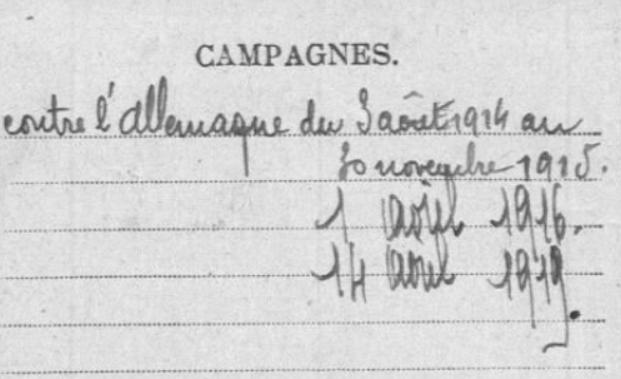 CAMPAGNES.
contre l'Allemagne du 3 août 1914 au
30 novembre 1915.
1 Avril 1916.
14 Avril 1919.